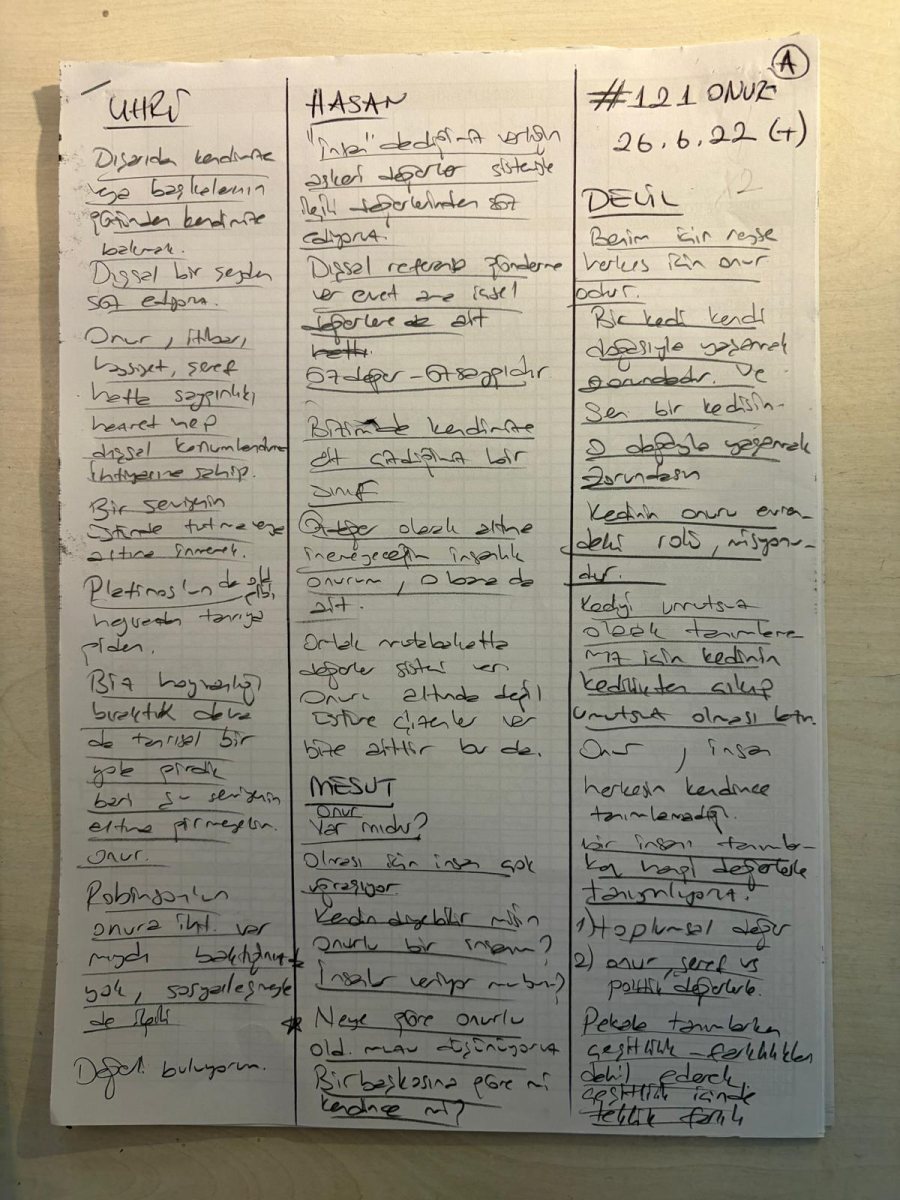 A
UHRÛ
Dışarıdan kendimize
veya başkalarının
gözünden kendimize
bakmak.
Dışsal bir şeyden
söz ediyoruz.
Onur, itibar,
haysiyet, şeref
hatta saygınlık,
hep
dışsal konumlandırma
ihtiyacına sahip.
Bir seviyenin
üstünde tutma veya
altına inmemek.
Platinos'un da old. gibi,
hayvandan tanrıya
giden.
Biz hayvanlığı
bıraktık daha
da tanrısal bir
yola girdik
bari şu seviyenin
altına girmeyelim.
Onur.
Robinson'un
onura iht. var
mıydı baktığımız
yok, sosyalleşmeyle
de ilgili
Değerli buluyorum.
HASAN
"İnsan" dediğimiz varlığın
aşkın değerler sistemiyle
ilgili değerlerinden söz
ediyoruz.
Dışsal referans gönderme
var evet ama içsel
değerlere de ait
Özdeğer - özsaygıdır
Bizim de kendimize
ait çizdiğimiz bir
sınır
olarak altına
inemeyeceğim insanlık
onurum, o bana da
ait.
Ortak mutabakatta
değerler sistemi var.
Onun altında değil
üstüne çizenler var
bize aittir bu da.
MESUT
Onur
Var mıdır?
Olması için insan çok
uğraşıyor
Kendin diyebilir misin
onurlu bir insanım?
İnsanlar veriyor mu bunu?
* Neye göre onurlu
old. mızı düşünüyoruz
Bir başkasına göre mi
kendince mi?
#121 ONUR
26.6.22 (+)
DELİL
Benim için neyse
herkes için onur
odur.
Bir kedi kendi
doğasıyla yaşamak
zorundadır. Ve
Sen bir kedisin
O doğayla yaşamak
zorundasın
Kedinin onuru evren-
deki rolü, misyonu-
dur.
Kediyi umutsuz
olarak tanımlama
mız için kedinin
kedilikten çıkıp
umutsuz olması lazım.
Onur, insan
herkesin kendince
tanımlamadığı.
bir insanı tanımlar-
ken hangi değerlerle
tanımlıyoruz.
1) toplumsal değer
2) onur, şeref vs
politik değerlerle.
Pekala tanımlarken
çeşitlilik - farklılıkları
dahil ederek
çeşitlilik içinde
teklik farkı